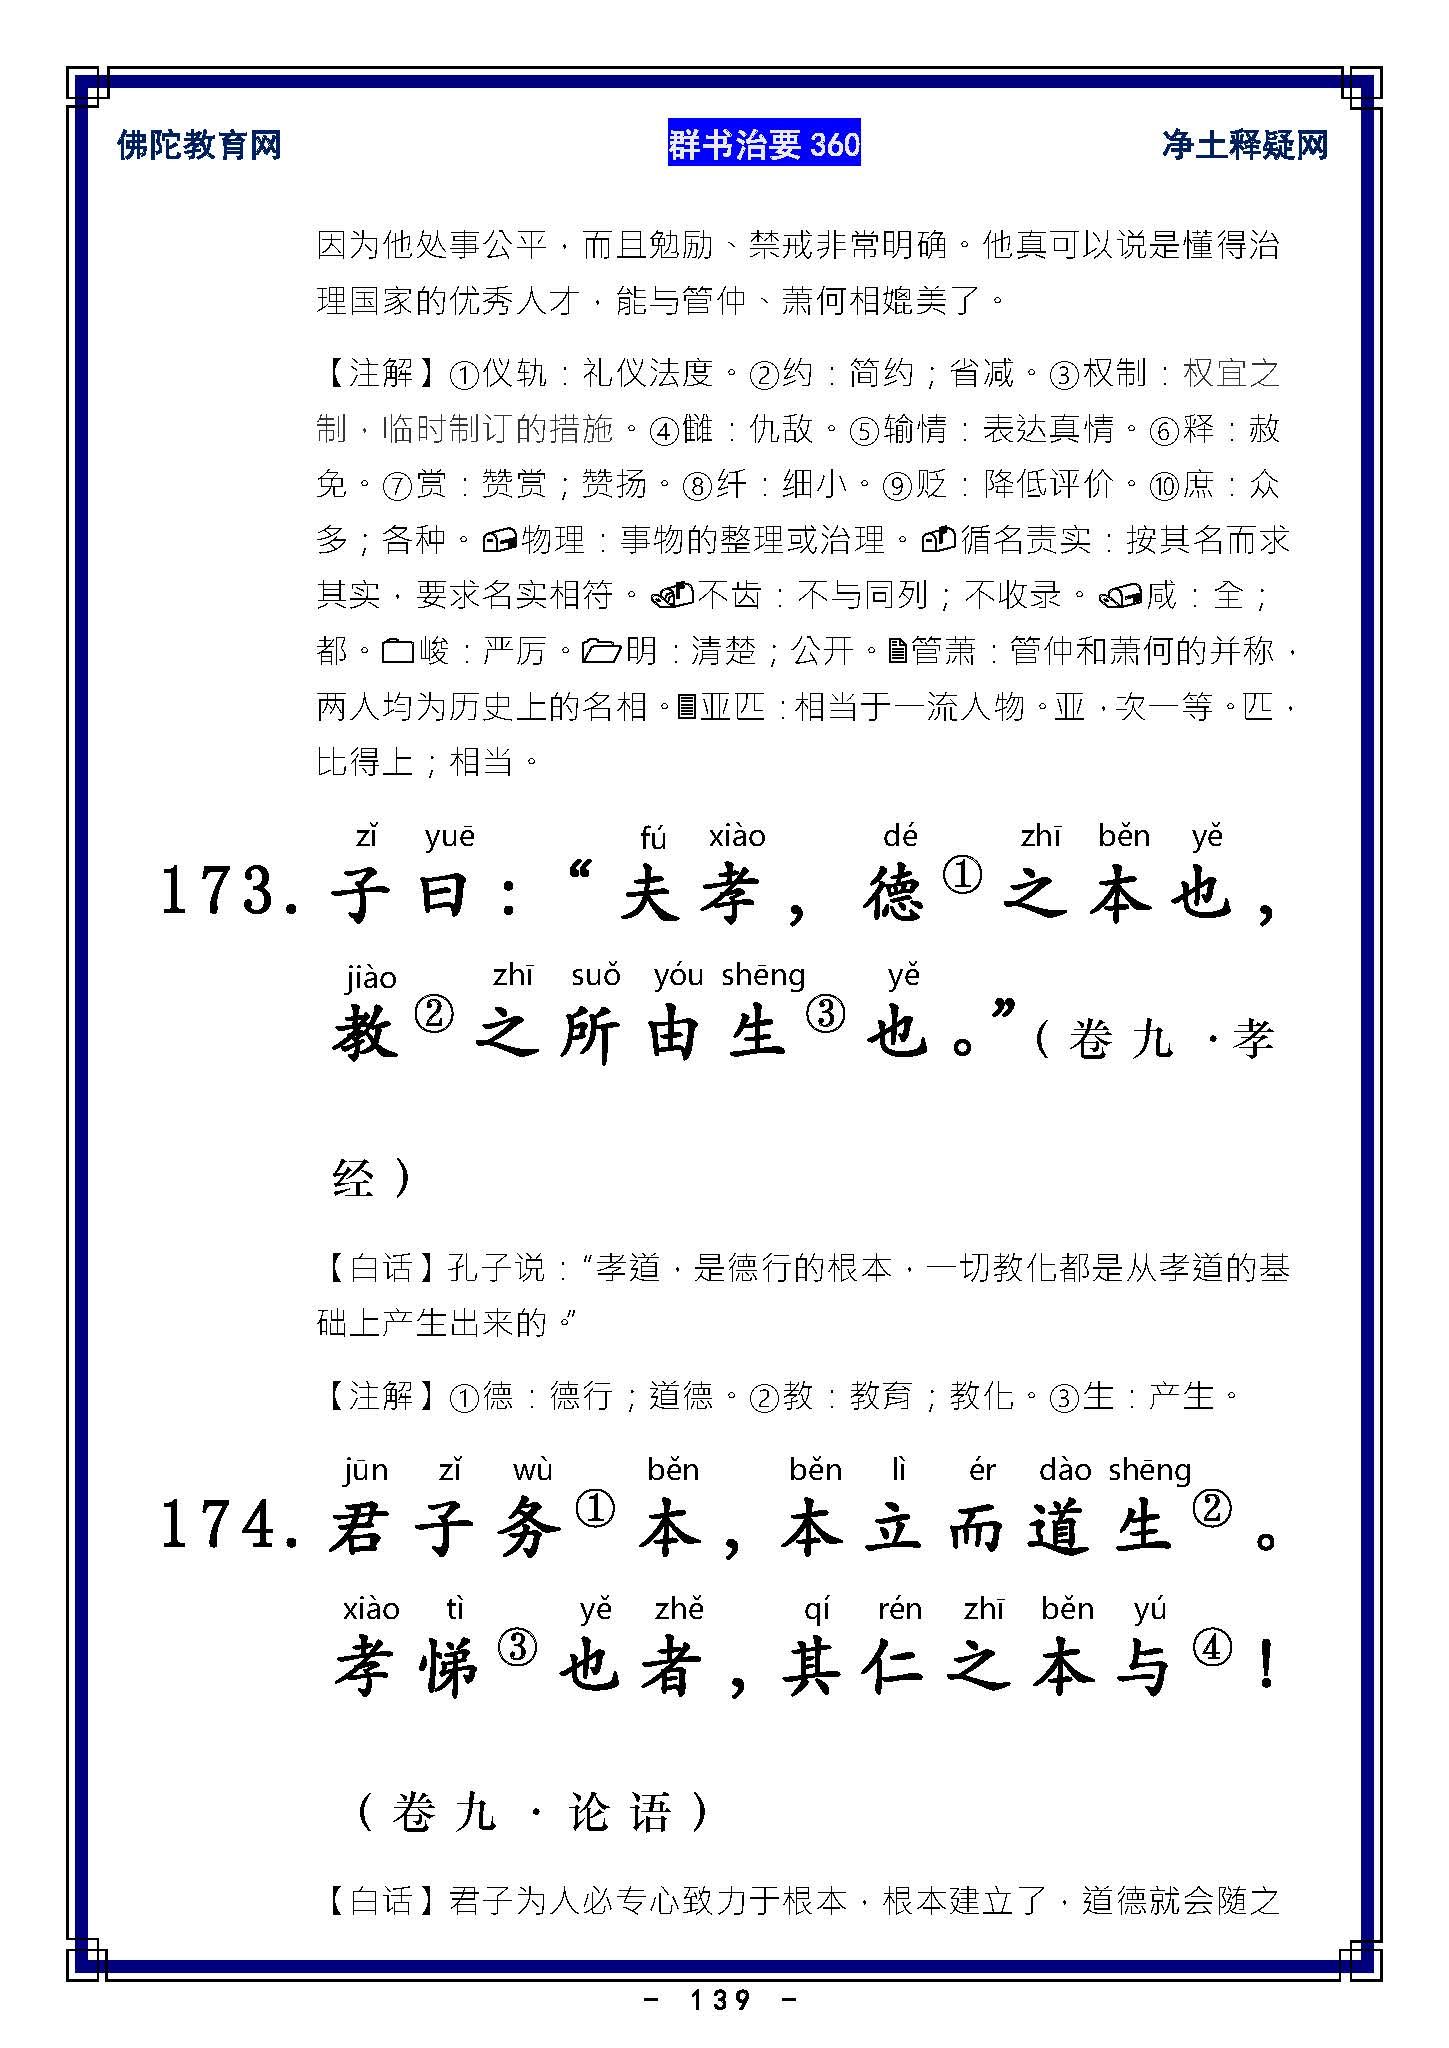 佛陀教育网 群书治要 360 净土释疑网
因为他处事公平，而且勉励、禁戒非常明确。他真可以说是懂得治
理国家的优秀人才，能与管仲、萧何相媲美了。
【注解】①仪轨：礼仪法度。②约：简约；省减。③权制：权宜之
制，临时制订的措施。④雠：仇敌。⑤输情：表达真情。⑥释：赦
免。⑦赏：赞赏；赞扬。⑧纤：细小。⑨贬：降低评价。⑩庶：众
多；各种。物理：事物的整理或治理。循名责实：按其名而求
其实，要求名实相符。不齿：不与同列；不收录。咸：全；
都。峻：严厉。明：清楚；公开。管萧：管仲和萧何的并称，
两人均为历史上的名相。亚匹：相当于一流人物。亚，次一等。匹，
比得上；相当。
zǐ yuē fú xiào dé zhī běn yě
173. 子曰：“夫孝，德①之本也，
jiào zhī suǒ yóu shēng yě
教②之所由生③也。”（卷九·孝
经）
【白话】孔子说：“孝道，是德行的根本，一切教化都是从孝道的基
础上产生出来的。”
【注解】①德：德行；道德。②教：教育；教化。③生：产生。
jūn zǐ wù běn běn lì ér dào shēng
174. 君子务①本，本立而道生②。
xiào tì yě zhě qí rén zhī běn yú
孝悌③也者，其仁之本与④！
（卷九·论语）
【白话】君子为人必专心致力于根本，根本建立了，道德就会随之
- 139 -